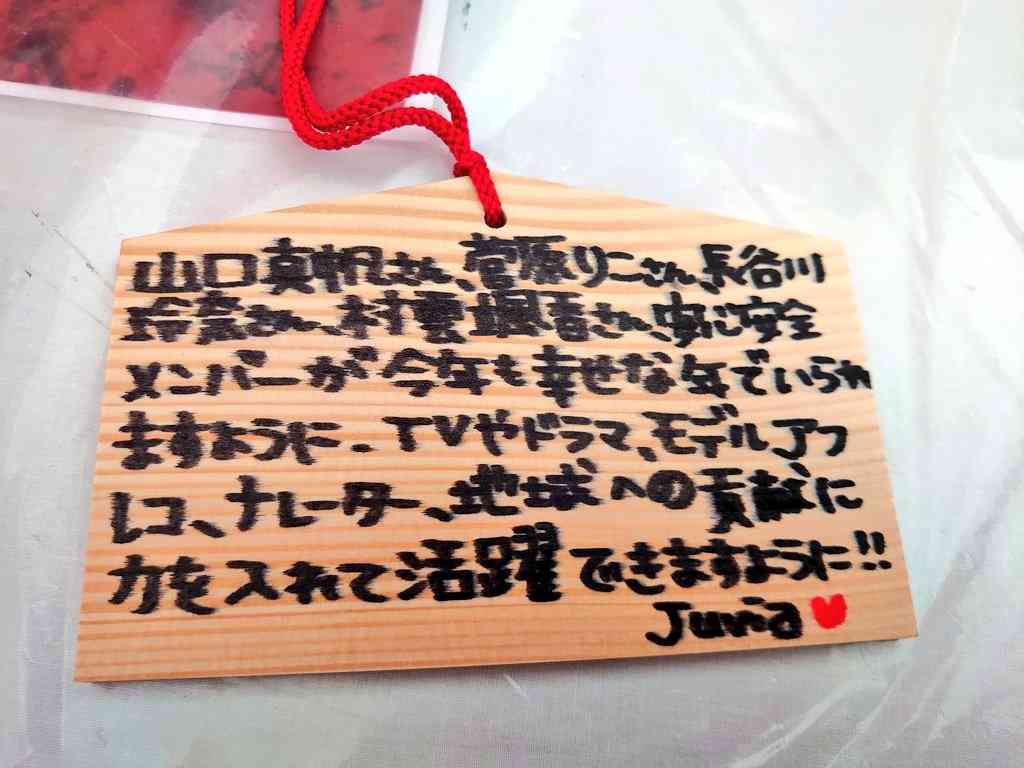 山口真帆さん、菅原りこさん、長谷川
玲奈さん、村雲颯香さん、安心安全
メンバーが今年も幸せな年でいられ
ますように。TVやドラマ、モデルアフ
レコ、ナレーター、地域への貢献に
力を入れて活躍できますように!!
Juria♥